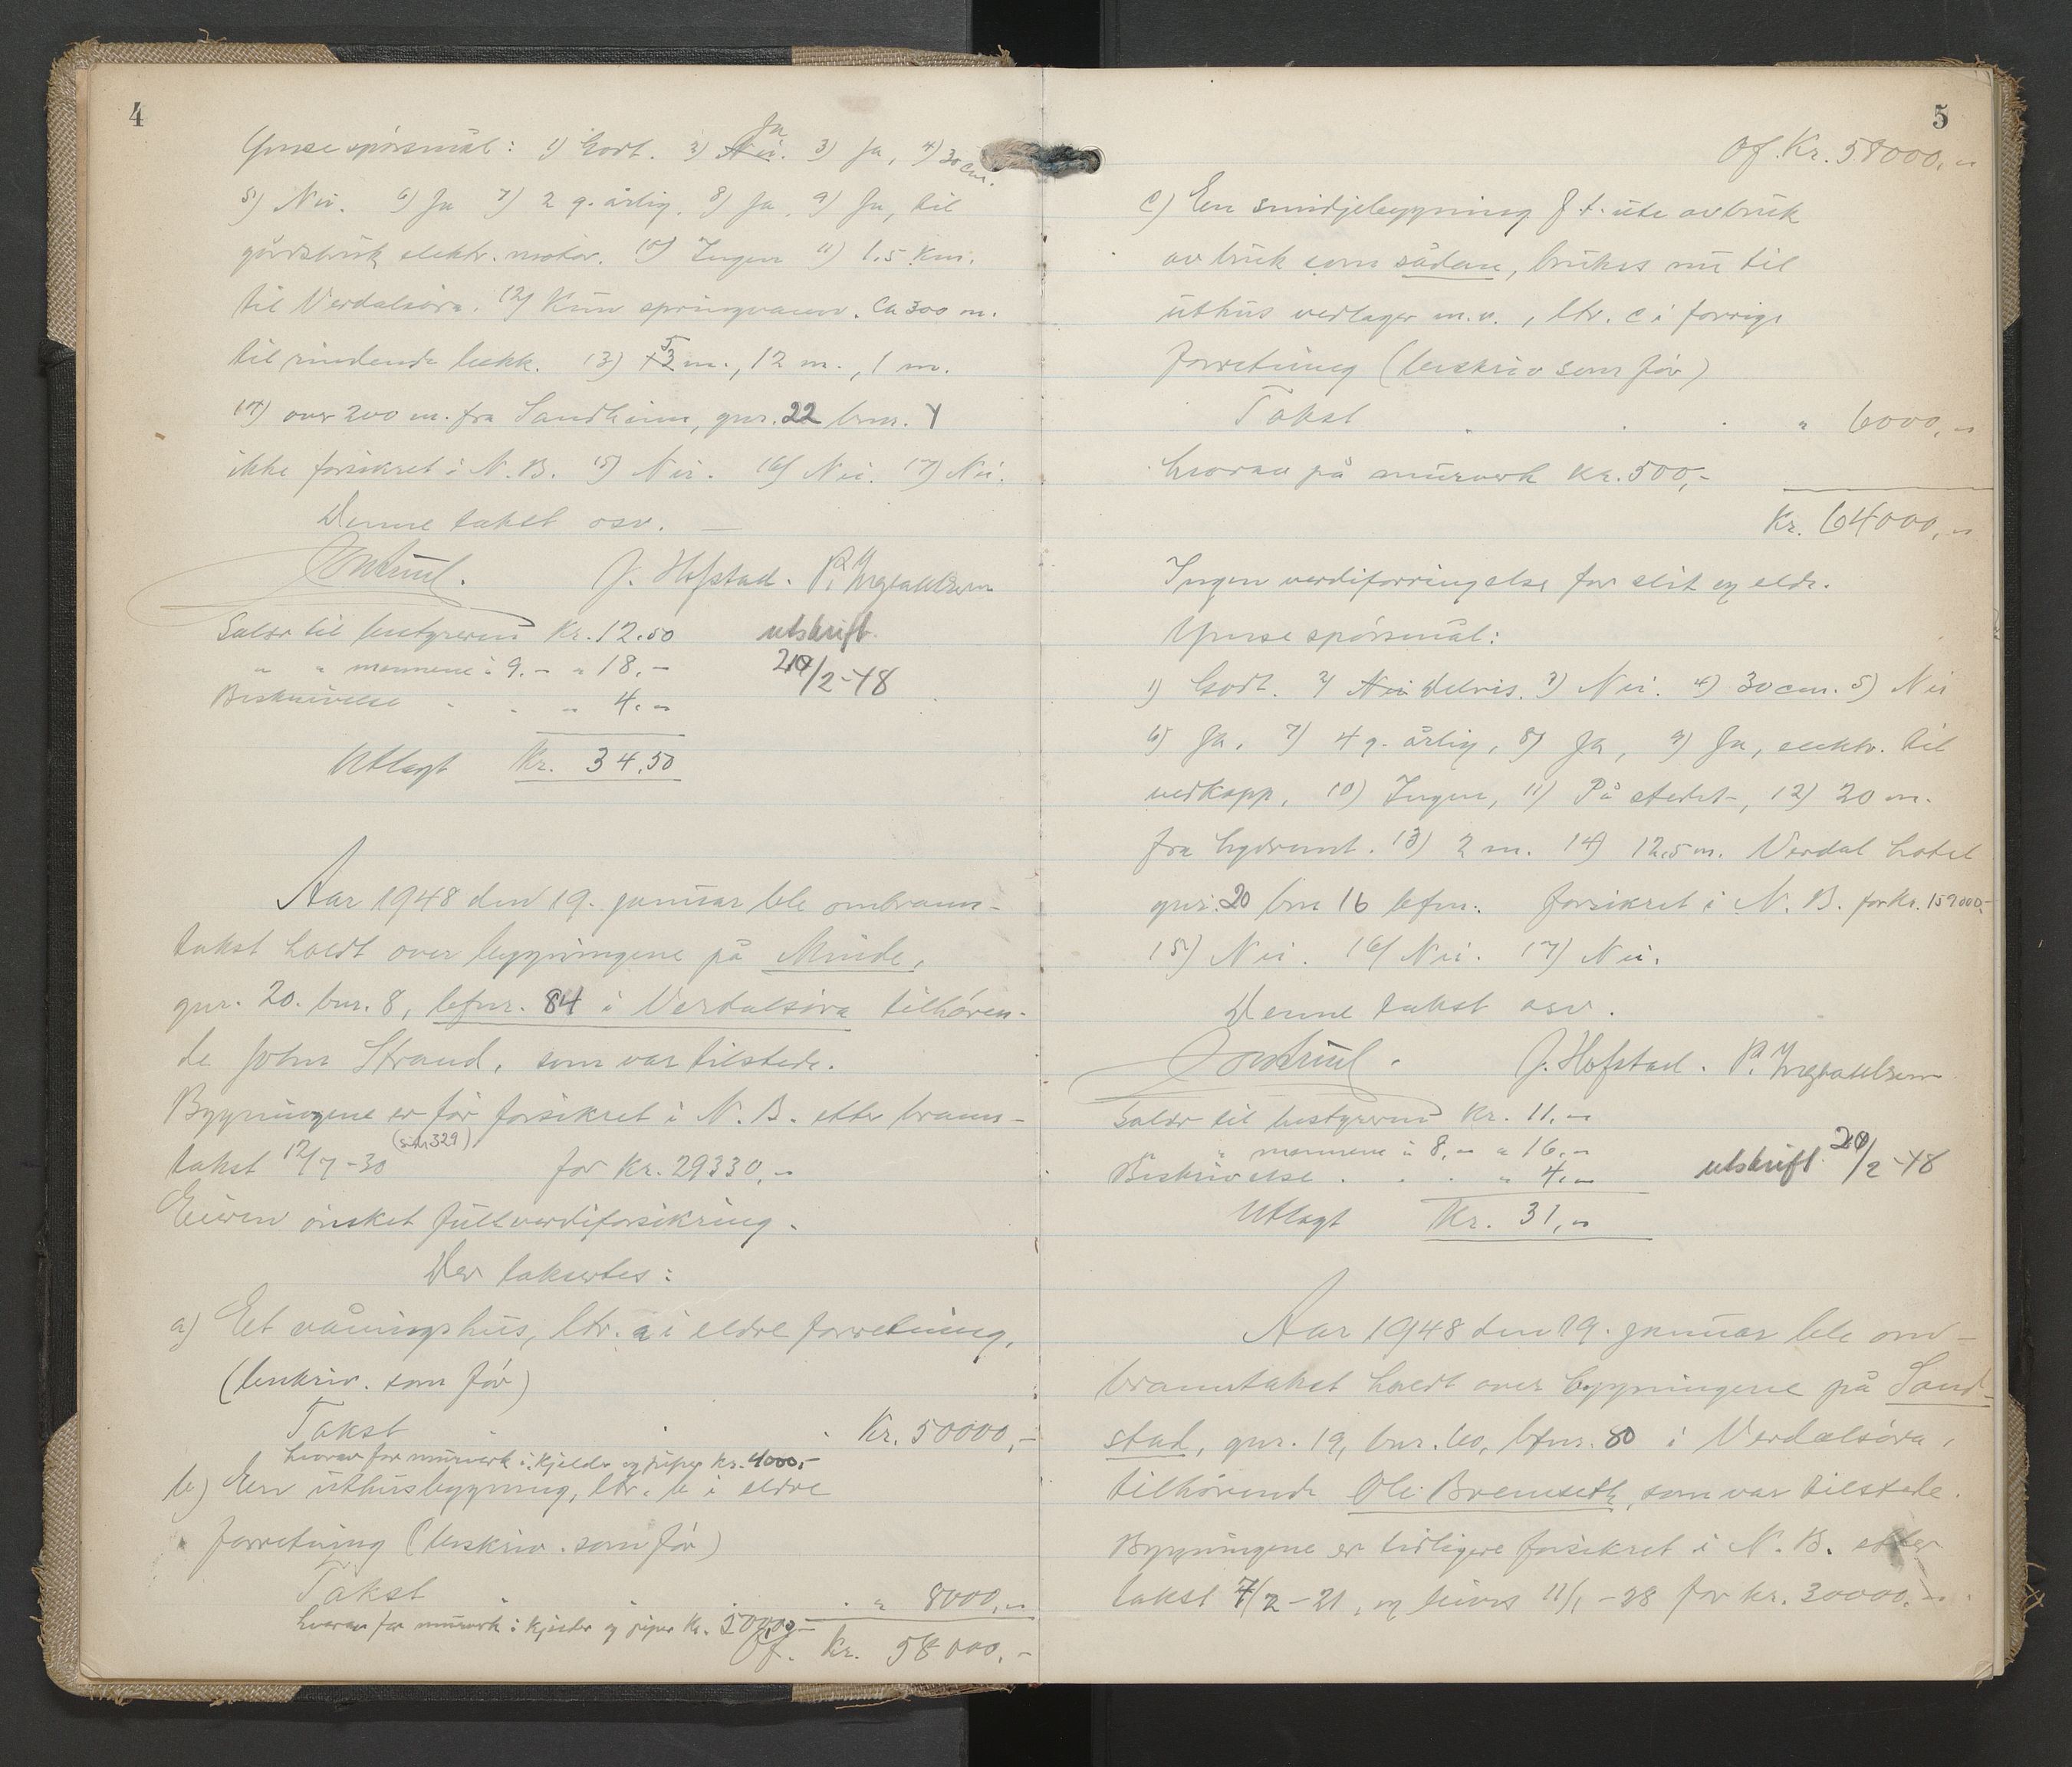 4
Ymse spörsmål: 1) Godt. 2) Nei. Ja 3) Ja, 4) 30 cm.
5) Nei. 6) Ja 7) 2 g. årlig. 8) Ja, 9) Ja, til
gårdsbruk elektr. motor. 10) Ingen 11) 1.5 km.
til Verdalsöra. 12) Kun springvann. Ca 300 m.
til rindende bekk. 13) 5 m., 12 m., 1 m.
14) over 200 m. fra Sandheim, gnr. 22 bnr. 4
ikke forsikret i N.B. 15) Nei. 16) Nei. 17) Nei.
Denne takst osv.
J. Hofstad. P. Ingvaldsen
Salær til bestyreren Kr. 12.50 utskrift
" " mennene à 9,- " 18,- 20/2-48
Beskrivelse . . " 4,-
Utlagt Kr. 34,50
Aar 1948 den 19. januar ble ombrann-
takst holdt over bygningene på Minde,
gnr. 20. bnr. 8, bfnr. 84 i Verdalsöra tilhören-
de John Strand, som var tilstede.
Bygningene er för forsikret i N.B. etter brann-
takst 12/7-30 (side 329) for Kr. 29330,-
Eieren önsket fullverdiforsikring.
Der taksertes:
a) Et våningshus, ltr. a i eldre forretning,
(beskriv. som för)
Takst . . Kr. 50000,-
hvorav for murverk i kjelder og piper kr. 4000,-
b) En uthusbygning, ltr. b i eldre
forretning (beskriv. som för)
Takst . . " 8000,-
hvorav for murverk i kjelder og piper Kr. 500,00
Of. Kr. 58000,-
5
Of. Kr. 58000,-
c) En smidjebygning f. t. ute av bruk
av bruk som sådan, brukes nu til
uthus vedlager m.v., ltr. c i forrige
forretning (beskriv som för)
Takst . . . " 6000,-
hvorav på murverk kr. 500,-
Kr. 64000,-
Ingen verdiforringelse for slit og elde.
Ymse spörsmål:
1) Godt. 2) Nei Delvis. 3) Nei. 4) 30 cm. 5) Nei
6) Ja. 7) 4 g. årlig, 8) Ja, 9) Ja, elektr. til
vedkapp, 10) Ingen, 11) På stedet, 12) 20 m.
fra hydrant. 13) 2 m. 14) 12,5 m. Verdal hotel
gnr. 20 bnr 16 bfnr. forsikret i N.B. for Kr. 159000,-
15) Nei. 16) Nei. 17) Nei.
Denne takst osv.
J. Hofstad. P. Ingvaldsen
Salær til bestyreren Kr. 11,-
" mennene à 8,- " 16,-
Beskrivelse . . . " 4,- utskrift 20/2-48
Utlagt Kr. 31,-
Aar 1948 den 19. januar ble om-
branntakst holdt over bygningene på Sand-
stad, gnr. 19, bnr. 60, bfnr. 80 i Verdalsöra,
tilhörende Ole Bremseth, som var tilstede.
Bygningene er tidligere forsikret i N.B. etter
takst 7/2-21, og 11/1-28 for kr. 30000,-